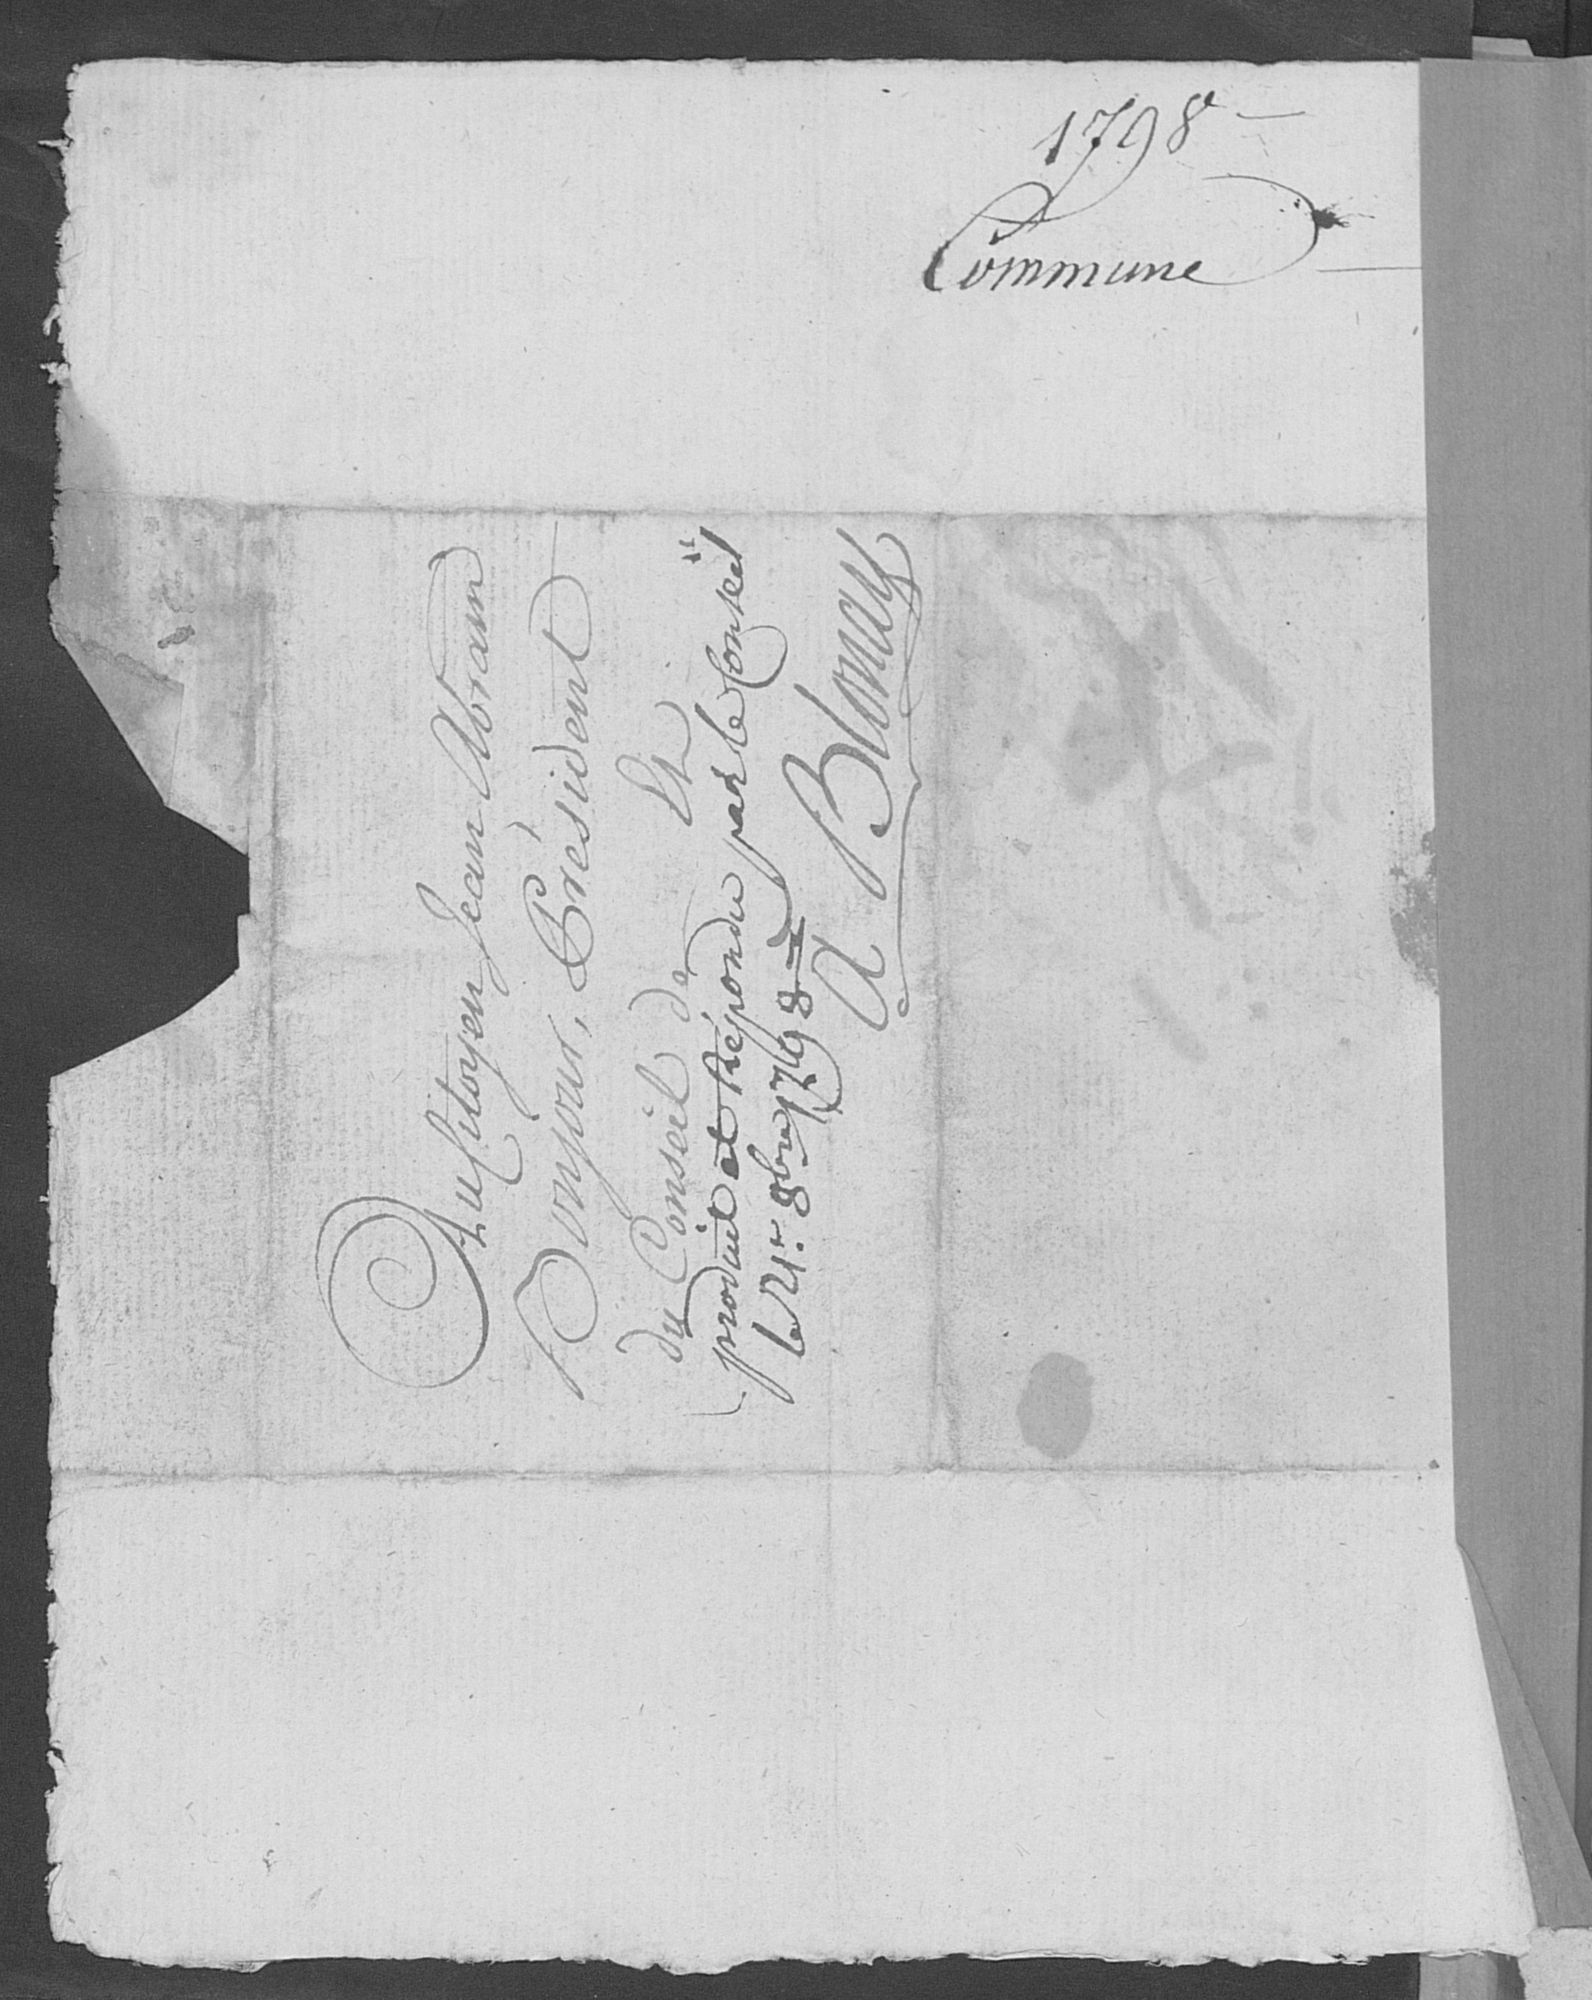 1798
Commune
Au Citoyen Jean Abram
Bonjour, Président
du Conseil de Et
produit et Répondu par le Conseil
le 21.r 8bre 1798
A Blonay